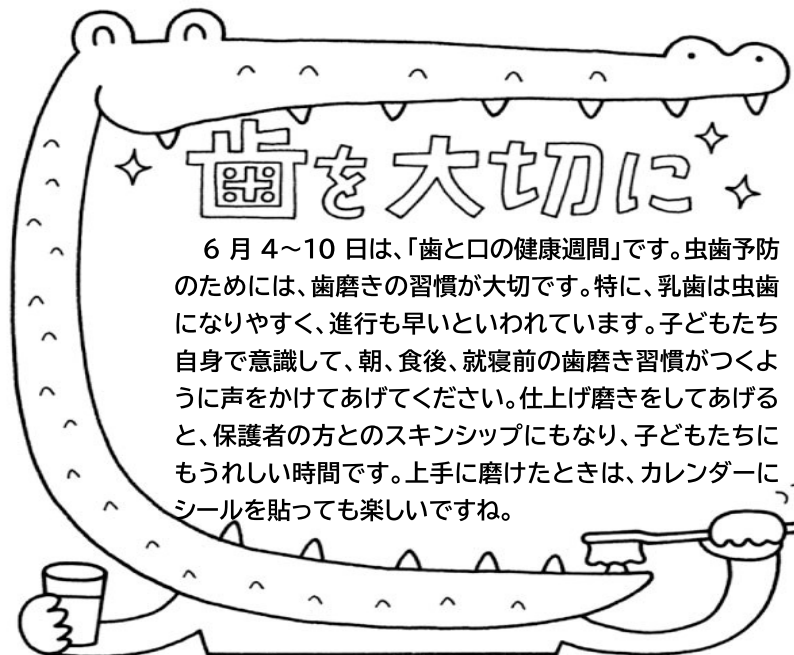 歯を大切に
6月4～10日は、「歯と口の健康週間」です。虫歯予防
のためには、歯磨きの習慣が大切です。特に、乳歯は虫歯
になりやすく、進行も早いといわれています。子どもたち
自身で意識して、朝、食後、就寝前の歯磨き習慣がつくよ
うに声をかけてあげてください。仕上げ磨きをしてあげる
と、保護者の方とのスキンシップにもなり、子どもたちに
もうれしい時間です。上手に磨けたときは、カレンダーに
シールを貼っても楽しいですね。